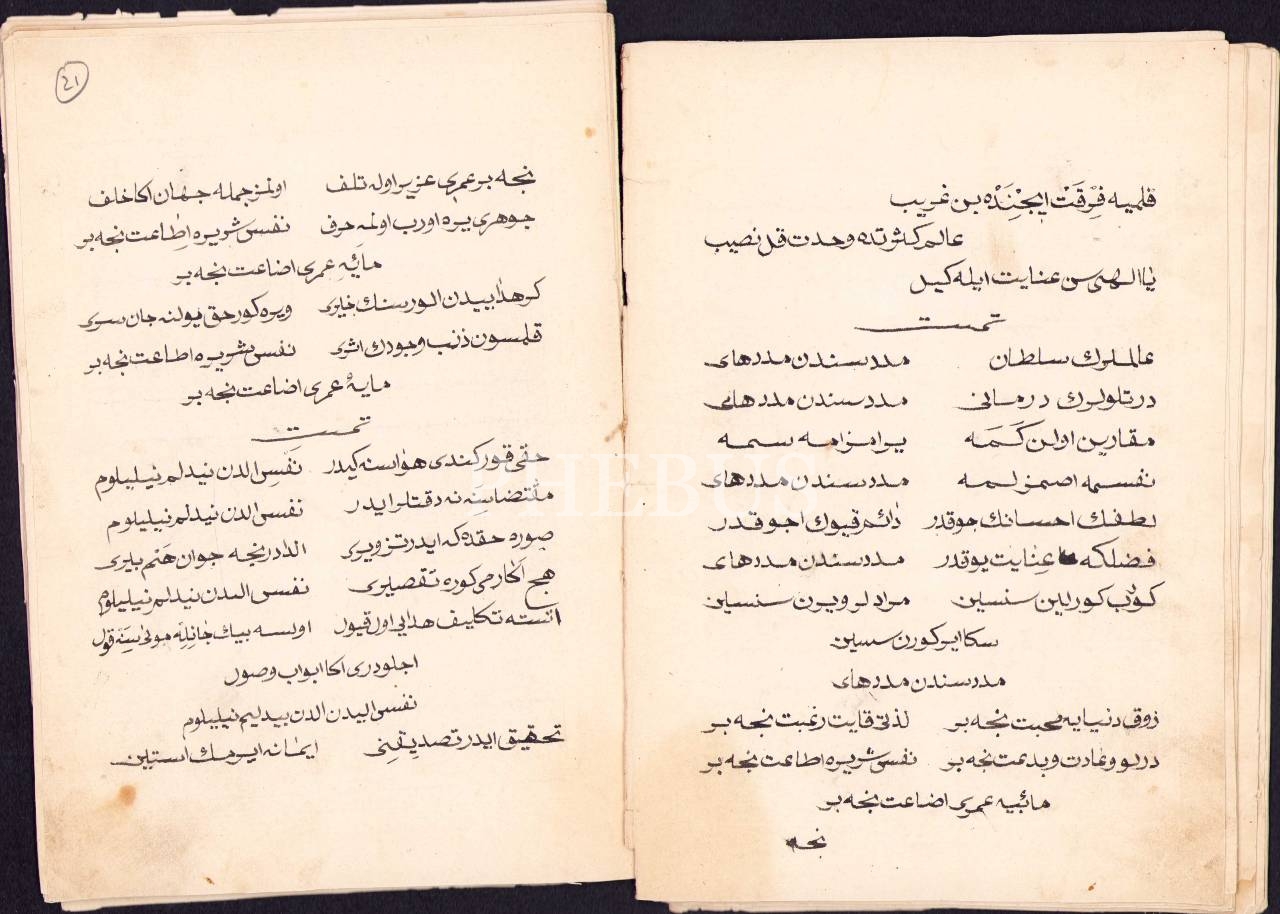 قلمیه فِرْقَتْ ایچِنْدَه بن غریب
عالم کثرتده وحدت قل نصیب
یا الهی سن عنایت ایله کیل
تمت
عالملرك سلطان مدد سندن مددهای
درتلولرك درمانی مدد سندن مددهای
مقارین اولن کَمَه یرامزامه سمه
نفسمه اصمزلمه مدد سندن مددهای
لطفك احسانك چوقدر دائم قپوك اچوقدر
فضلکه عنایت یوقدر مدد سندن مددهای
کوُب کورلین سنسین مرادلر ویرن سنسین
سکا ایر کورن سسین
مدد سندن مددهای
زوق دنیایه محبت نجه بر لذتی قایت رغبت نجه بر
درلو وعادت وبدعت نجه بر نفسی شریره اطاعت نجه بر
مائیه عمری اضاعت نجه بر
نجه
٢١
نجه بر عمری عزیز اوله تلف اولمز جمله جهان اکا خلف
جوهری یره اورب اولمه حرف نفس شریره اِطاعت نجه بر
مایهٔ عمری اضاعت نجه بر
کر هدایدن الور سنك خبری ویره کور حق یولنه جان سری
قلمسون ذنب وجودك اثری نفس شریره اطاعت نجه بر
مایهٔ عمری اضاعت نجه بر
تمت
حقی قور کندی هواسنه کیدر نَفَس الدن نیدلم نیلیلوم
مقتضاسِنِه نه دقتلر ایدر نفس الدن نیدلم نیلیلوم
صوره حقده که ایدر تزویری الدادر نجه جوان هَم پیری
هیچ اکارمی کوره تقصیری نفس الندن نیدلم نیلیلوم
اتسته تکالیف هدایی اول قبول اولسه بیك جانِلَه مولیٰسِنَه قول
اچلودری اکا ابواب وصول
نفسی الیدن الدن بیدلیم نیلیلوم
تحقیق ایدر تصدیقنِی ایمانه ایرمك استین
PHEBUS